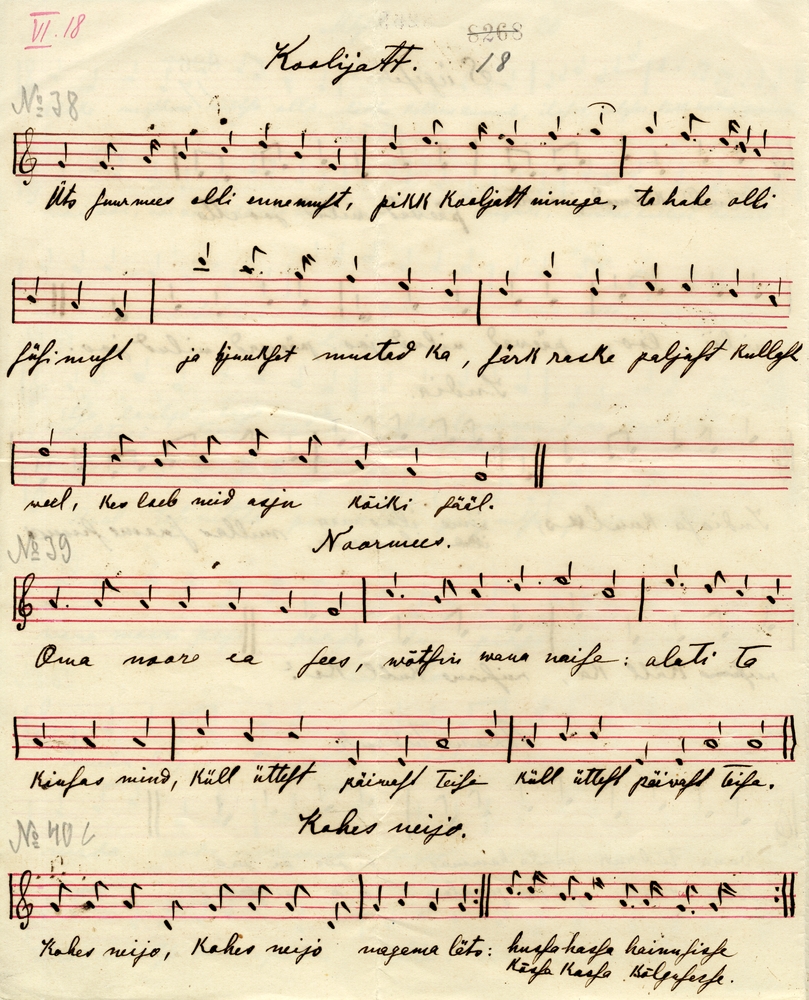 VI. 18
8268
Koolijatt.
18
№ 38
Üts suurmees olli ennemust, pikk Kooljatt nimega, ta habe olli
süsimust ja hjuukset mustad ka, särk raske paljast kullast
weel, kes loeb neid asju kõiki sääl.
Noormees.
№ 39
Oma noore ea sees, wõtsin wana naise: alati ta
kiusas mind, küll üttest päiwast teise küll üttest päivast teise.
Kahes neijo.
№ 40
Kahes neijo, Kahes neijo nagema läts: hussa hassa hainusisse
Kõssa Kassa kõlgusesse.